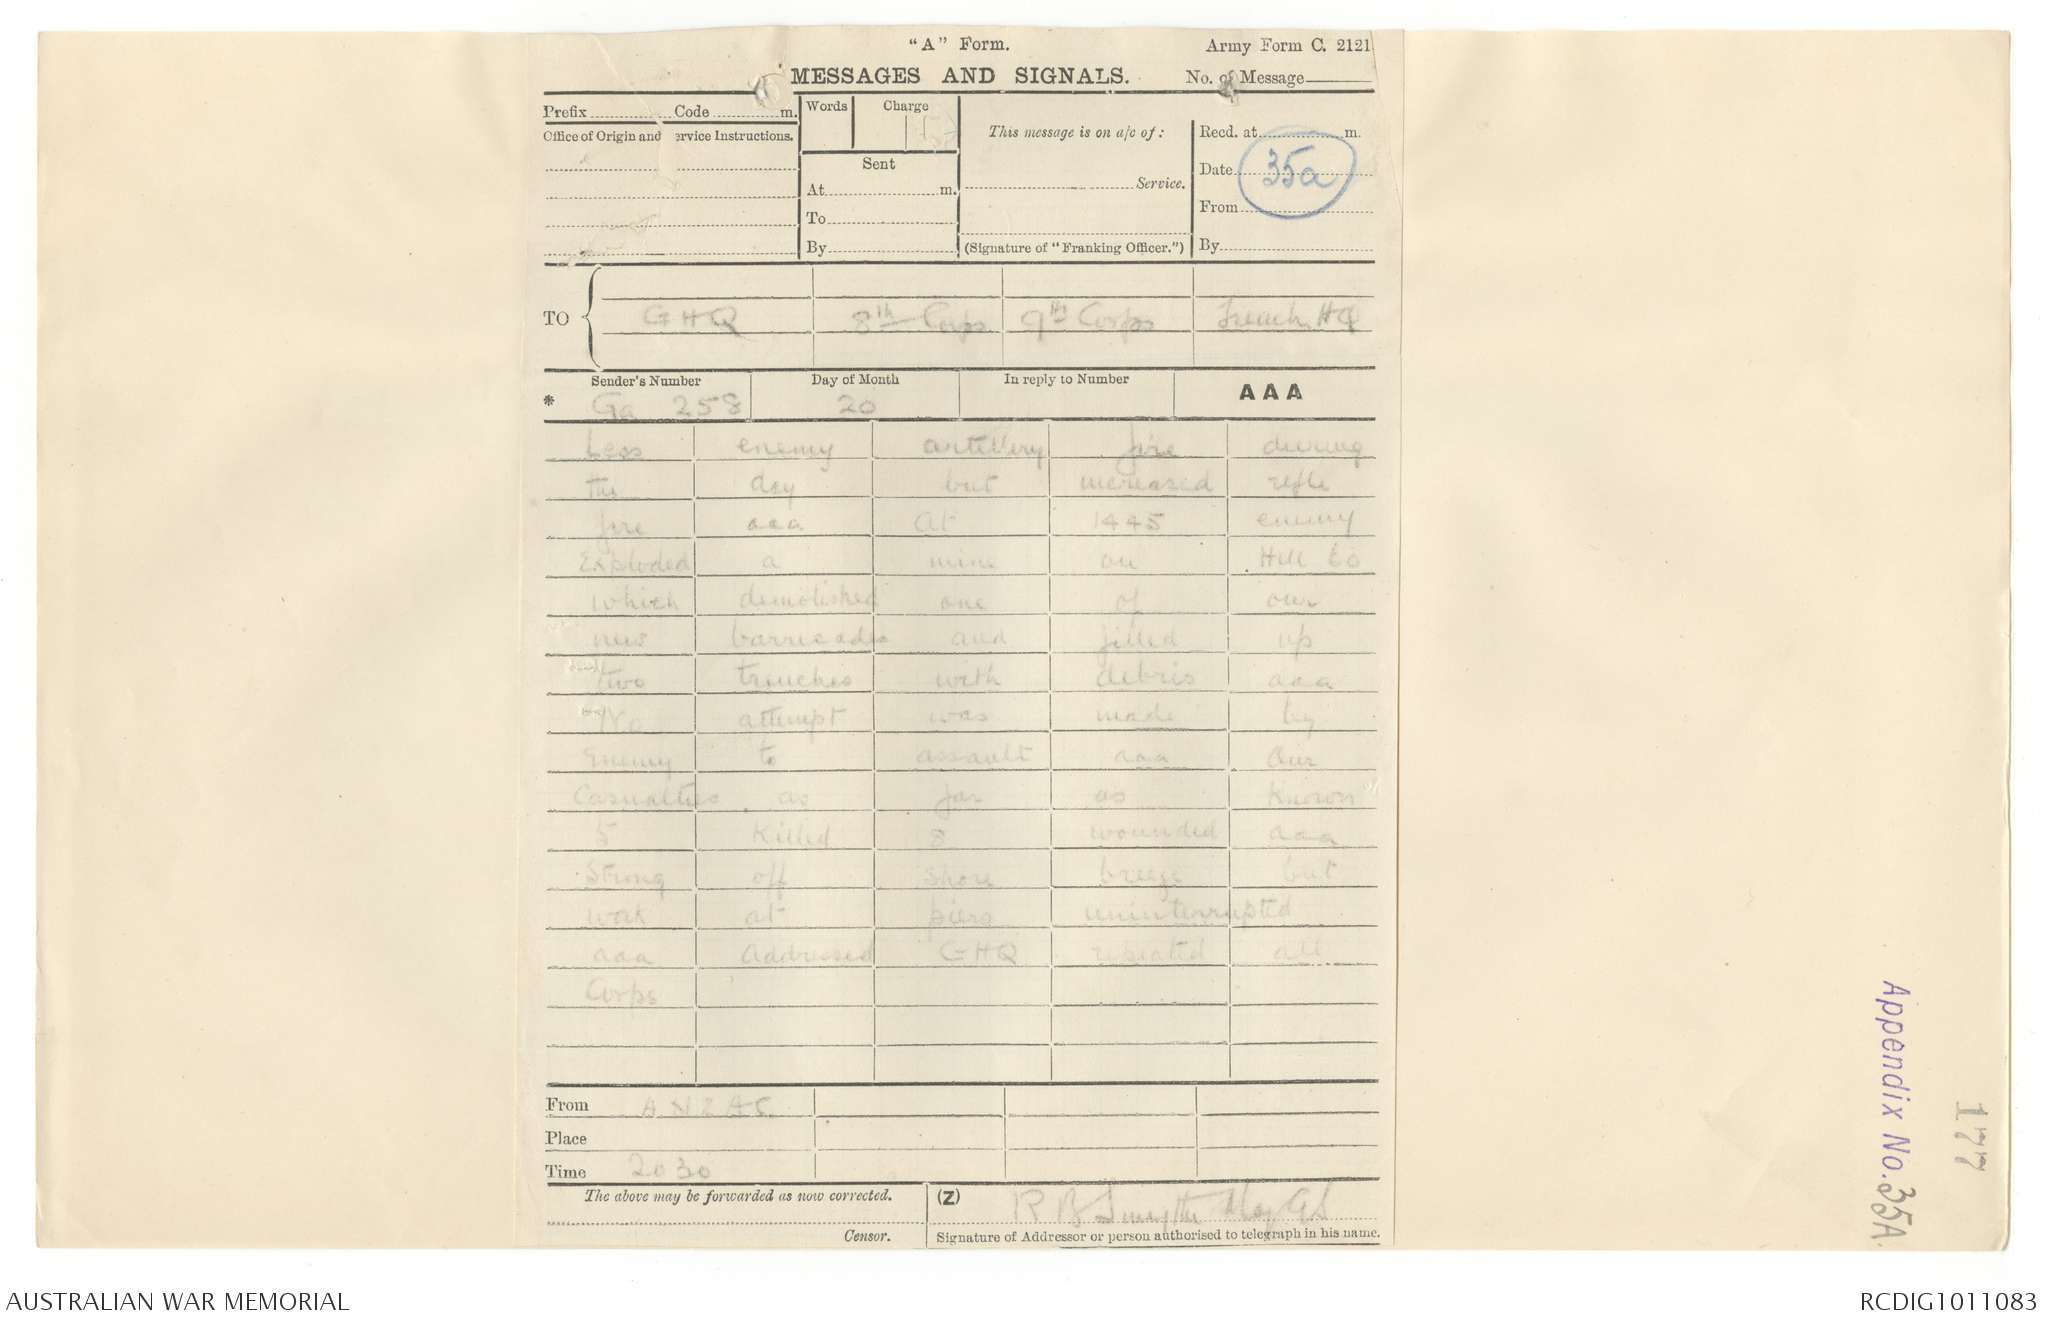 "A" Form. Army Form C. 2121
MESSAGES AND SIGNALS. No. of Message
Prefix Code m. Words Charge
Office of Origin and Service Instructions. This message is on a/c of: Recd. at m.
Sent Date 35a
At m. Service.
To From
By (Signature of "Franking Officer.") By
TO GHQ 8th Corps 9th Corps French HQ
Sender's Number Day of Month In reply to Number AAA
* Ga 258 20
Less enemy artillery fire during
the day but increased rifle
fire aaa At 1445 enemy
Exploded a mine on Hill 60
which demolished one of our
new barricades and filled up
two trenches with debris aaa
No attempt was made by
Enemy to assault aaa Our
Casualties as far as known
5 Killed 8 wounded aaa
Strong off shore breeze but
work at piers uninterrupted
aaa Addressed GHQ repeated all
Corps
From ANZAC
Place
Time 2030
The above may be forwarded as now corrected. (Z) R B Smythe Maj GS
Censor. Signature of Addressor or person authorised to telegraph in his name.
Appendix No. 35A.
177
AUSTRALIAN WAR MEMORIAL RCDIG1011083